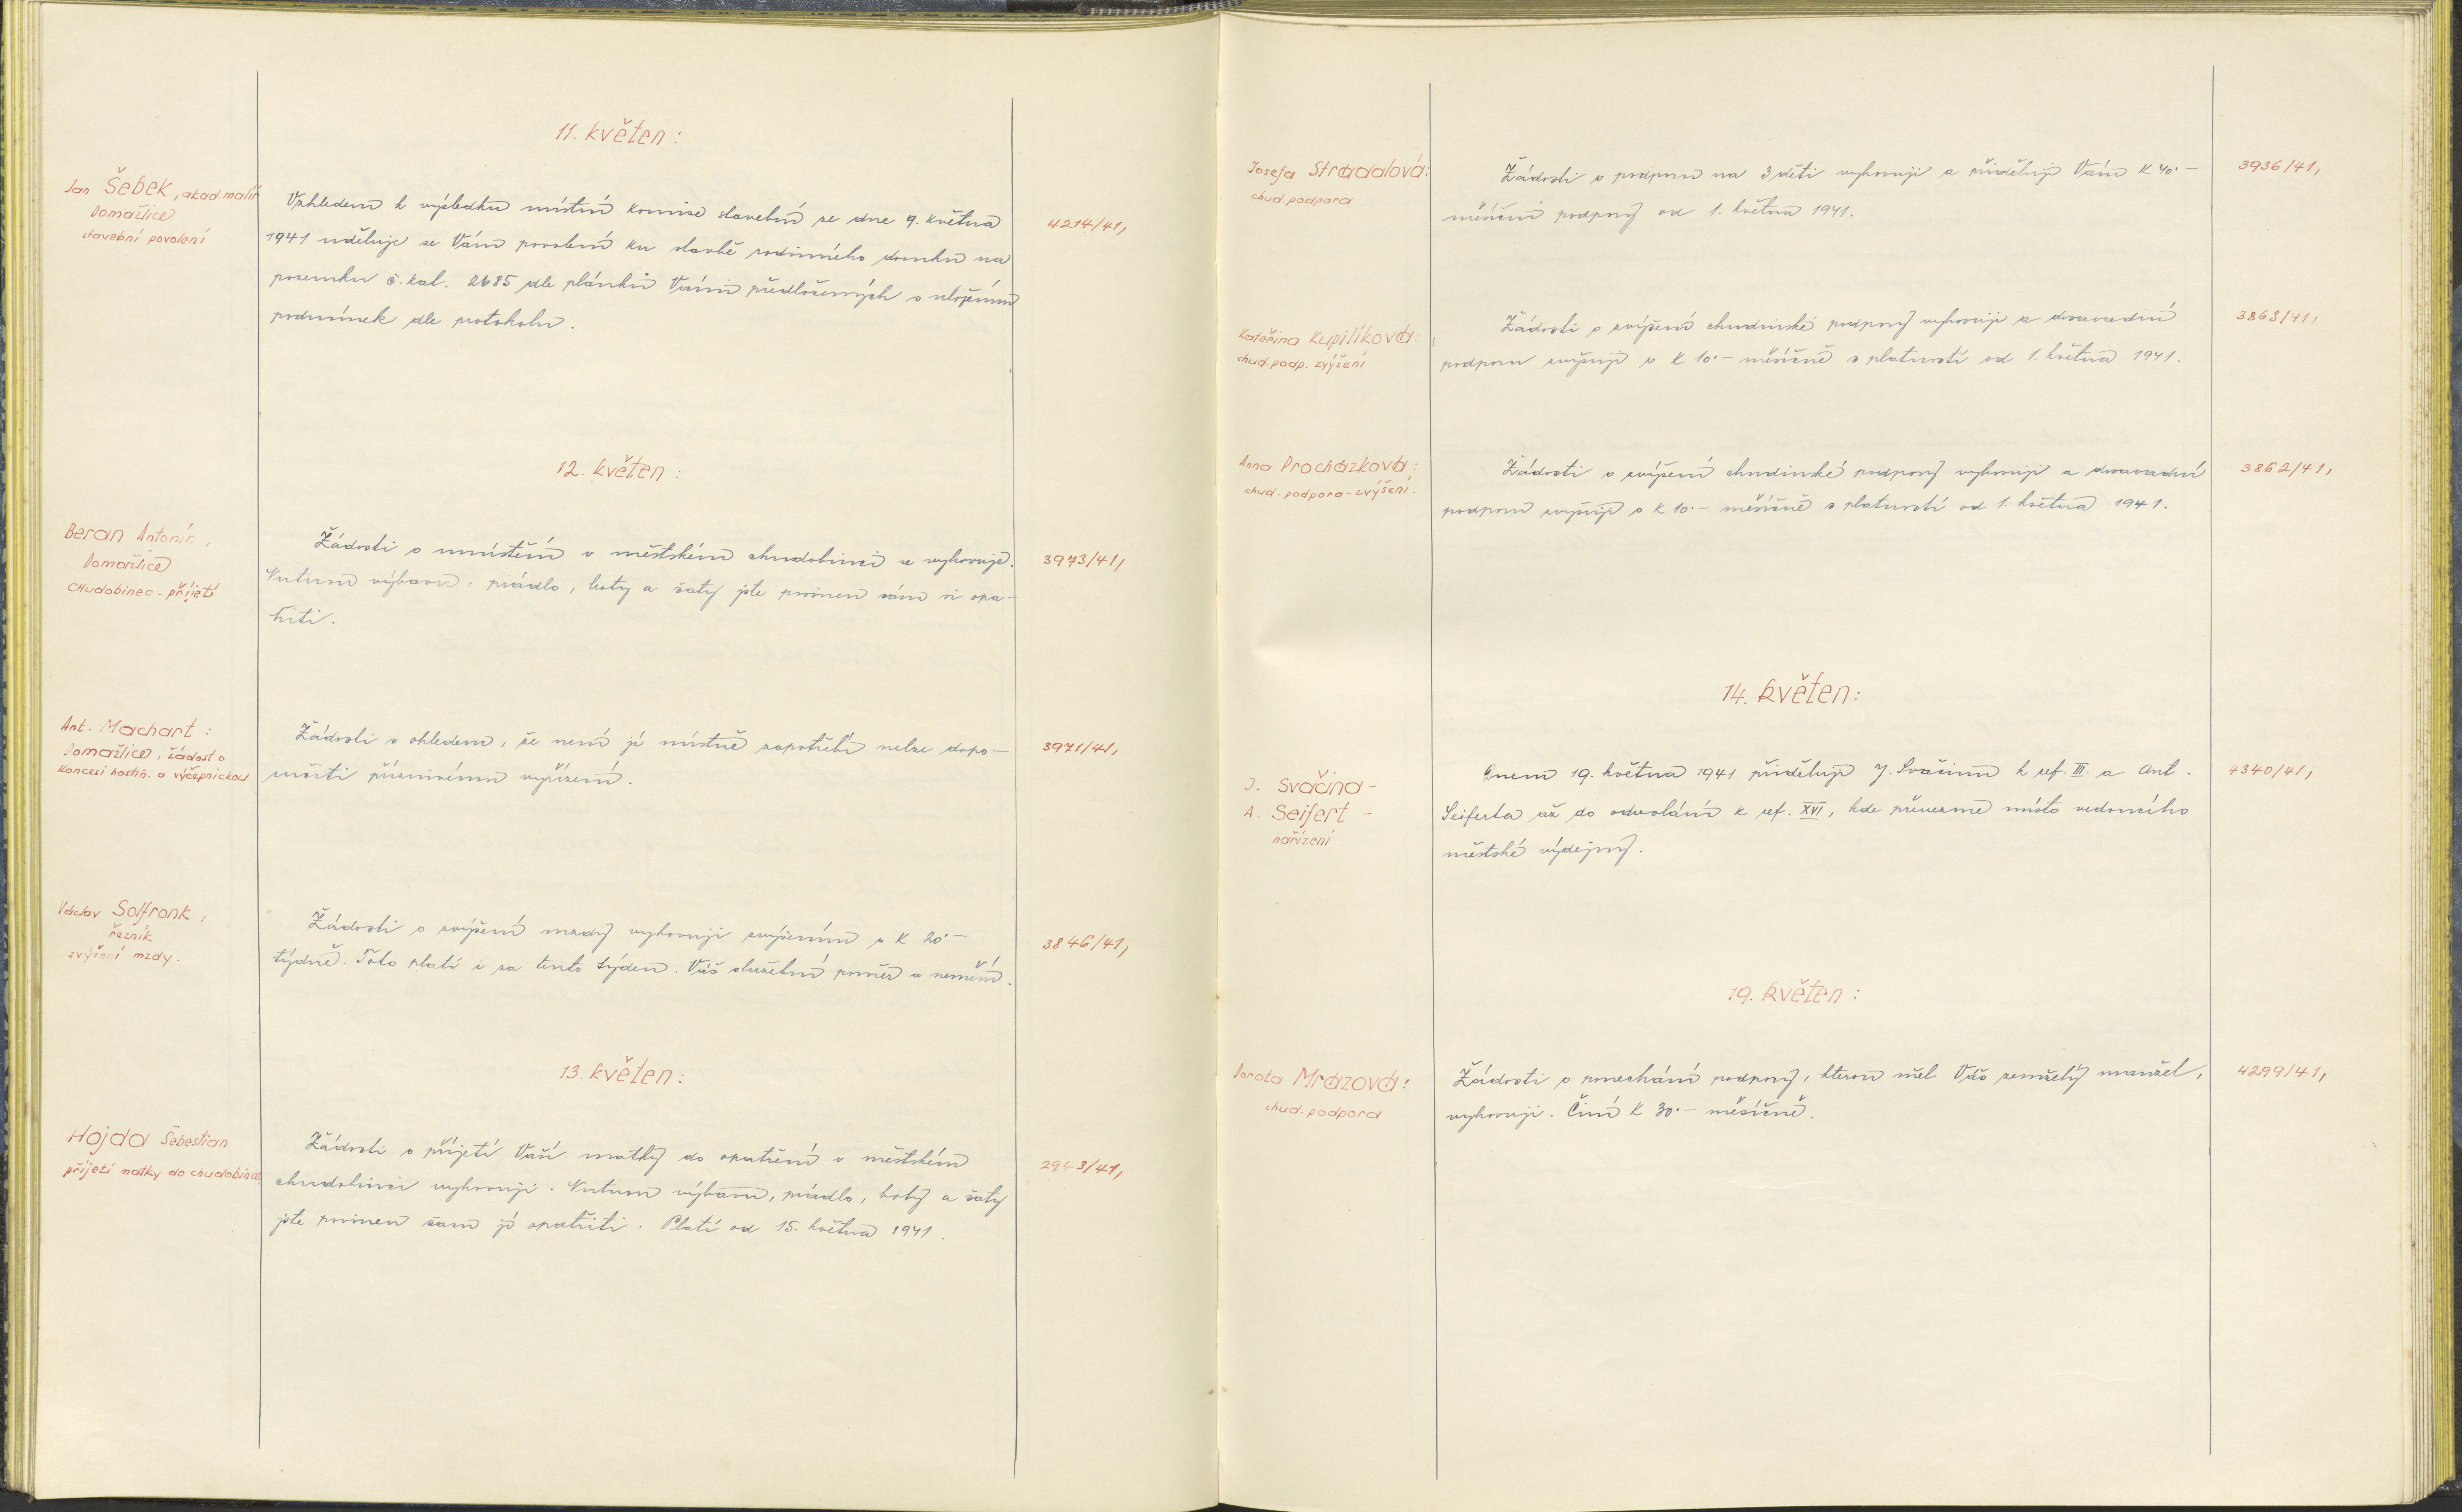 11. květen:
Jan Šebek, akad. malíř
Domažlice
stavební povolení
Vzhledem k výsledku místní komise stavební ze dne 9. května
1941 uděluje se Vám povolení ku stavbě rodinného domku na
pozemku č. kat. 2685 dle plánků Vámi předložených s uložením
podmínek dle protokolu.
4214/41,
12. květen:
Beran Antonín,
Domažlice
CHudobinec - přijetí
Žádosti o umístění v městském chudobinci se vyhovuje.
Nutnou výbavu: prádlo, boty a šaty jste povinen sám si opa-
třiti.
3973/41,
Ant. Machart:
Domažlice, žádost o
koncesi hostin. a výčepnickou
Žádosti s ohledem, že není jí místně zapotřebí nelze dopo-
moci příznivému vyřízení.
3971/41,
Václav Solfronk,
řezník
zvýšení mzdy.
Žádosti o zvýšení mzdy vyhovuji zvýšením o K 20·-
týdně. Toto platí i za tento týden. Váš služební poměr se nemění.
3846/41,
13. květen:
Hojda Šebestian
přijetí matky do chudobince
Žádosti o přijetí Vaší matky do opatření v městském
chudobinci vyhovuji. Nutnou výbavu, prádlo, boty a šaty
jste povinen sám jí opatřiti. Platí od 15. května 1941.
2943/41,
Josefa Stradalová:
chud. podpora
Žádosti o podporu na 3 děti vyhovuji a přiděluji Vám K 40·-
měsíční podpory od 1. května 1941.
3936/41,
Kateřina Kupilíková:
chud. podp. zvýšení
Žádosti o zvýšení chudinské podpory vyhovuji a dosavadní
podporu zvyšuji o K 10·- měsíčně s platností od 1. května 1941.
3863/41,
Anna Procházková:
chud. podpora - zvýšení.
Žádosti o zvýšení chudinské podpory vyhovuji a dosavadní
podporu zvyšuji o K 10·- měsíčně s platností od 1. května 1941.
3862/41,
14. květen:
J. Svačina -
A. Seifert -
nařízení
Dnem 19. května 1941 přiděluji J. Svačinu k ref. III. a Ant.
Seiferta až do odvolání k ref. XVI, kde převezme místo vedoucího
městské výdejny.
4340/41,
19. květen:
Dorota Mrázová:
chud. podpora
Žádosti o ponechání podpory, kterou měl Váš zemřelý manžel,
vyhovuji. Činí K 30·- měsíčně.
4299/41,